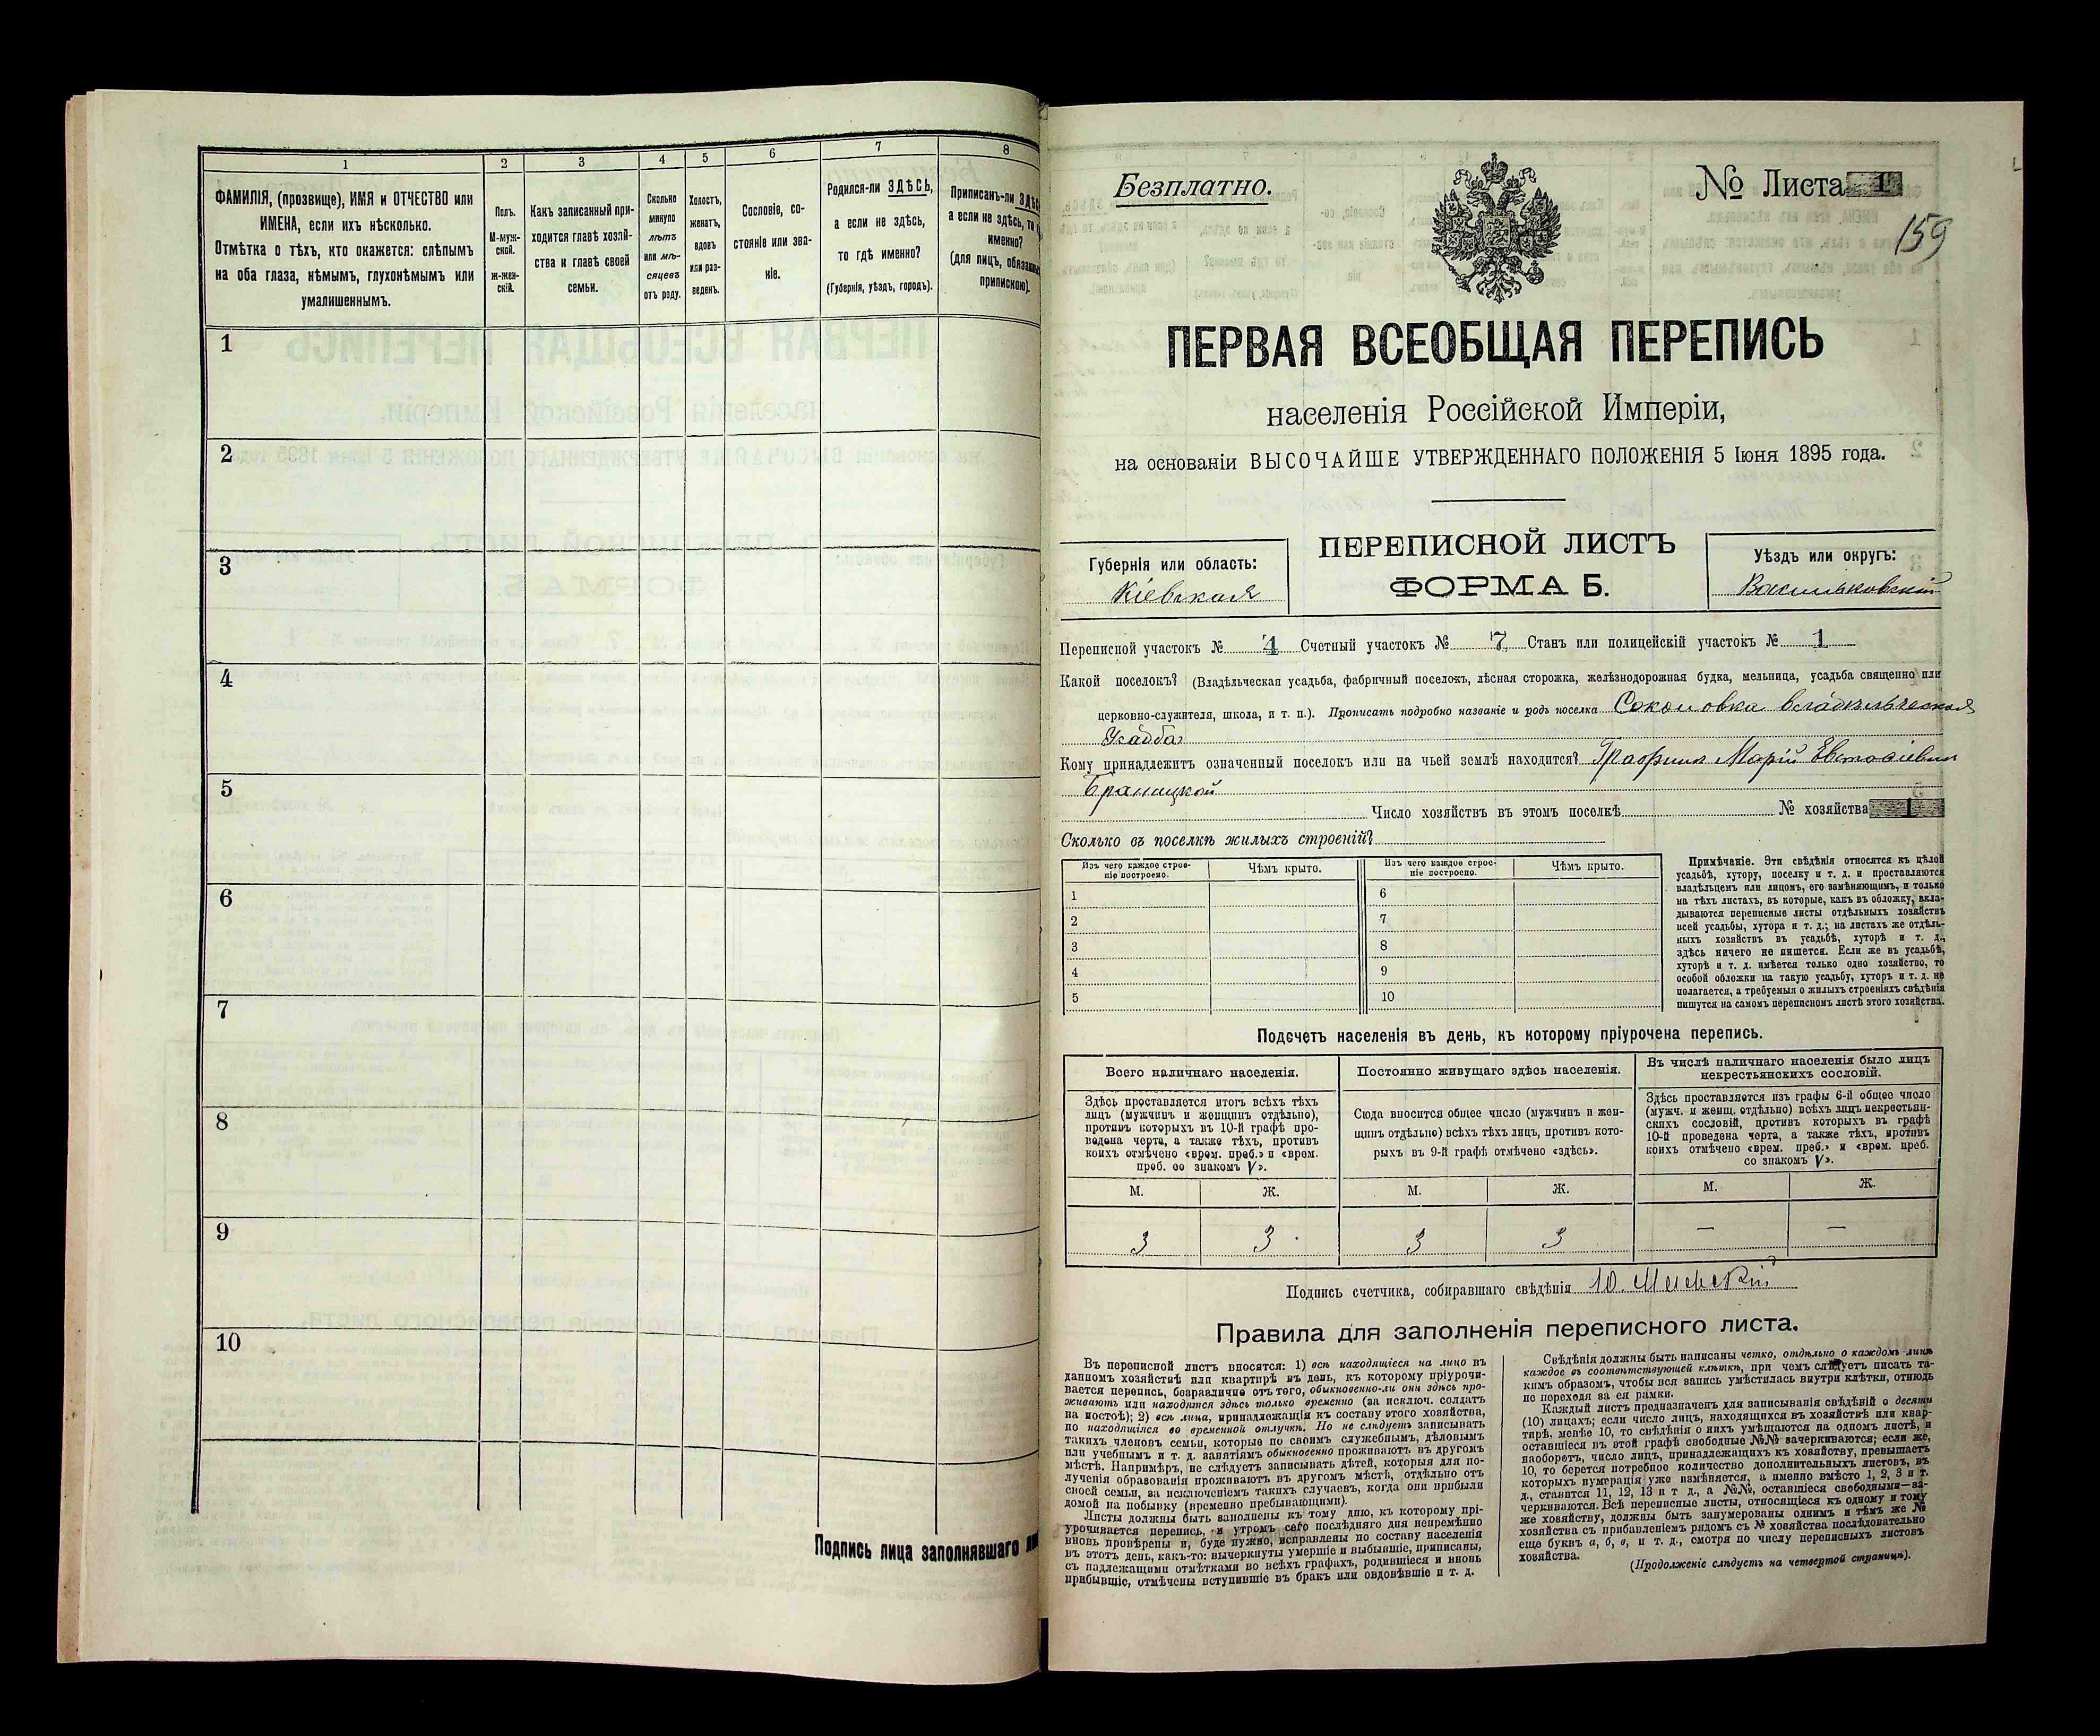 1
2
3
4
5
6
7
8
ФАМИЛІЯ, (прозвище), ИМЯ и ОТЧЕСТВО или
ИМЕНА, если ихъ нѣсколько.
Отмѣтка о тѣхъ, кто окажется: слѣпымъ
на оба глаза, нѣмымъ, глухонѣмымъ или
умалишеннымъ.
Полъ.
М-муж-
ской.
ж-жен-
скій.
Какъ записанный при-
ходится главѣ хозяй-
ства и главѣ своей
семьи.
Сколько
минуло
лѣтъ
или мѣ-
сяцевъ
отъ роду.
Холостъ,
женатъ,
вдовъ
или раз-
веденъ.
Сословіе, со-
стояніе или зва-
ніе.
Родился-ли ЗДѢСЬ,
а если не здѣсь,
то гдѣ именно?
(Губернія, уѣздъ, городъ).
Приписанъ-ли
а если не здѣсь,
именно?
(для лицъ,
припискою).
1
2
3
4
5
6
7
8
9
10
Подпись лица заполнявшаго
Безплатно.
№ Листа 1
159
ПЕРВАЯ ВСЕОБЩАЯ ПЕРЕПИСЬ
населенія Россійской Имперіи,
на основаніи ВЫСОЧАЙШЕ УТВЕРЖДЕННАГО ПОЛОЖЕНІЯ 5 Іюня 1895 года.
Губернія или область:
Кіевская
ПЕРЕПИСНОЙ ЛИСТЪ
ФОРМА Б.
Уѣздъ или округъ:
Васильковскій
Переписной участокъ № 4 Счетный участокъ № 7 Станъ или полицейскій участокъ № 1
Какой поселокъ? (Владѣльческая усадьба, фабричный поселокъ, лѣсная сторожка, желѣзнодорожная будка, мельница, усадьба священно или
церковно-служителя, школа, и т. п.). Прописать подробно названіе и родъ поселка Соколовка владѣльческая
Усадба
Кому принадлежитъ означенный поселокъ или на чьей землѣ находится? Графини Марій Евстафіевни
Браницкой
Число хозяйствъ въ этомъ поселкѣ № хозяйства 1
Сколько въ поселкѣ жилыхъ строеній?
Изъ чего каждое строе-
ніе построено.
Чѣмъ крыто.
Изъ чего каждое строе-
ніе построено.
Чѣмъ крыто.
1
2
3
4
5
6
7
8
9
10
Примѣчаніе. Эти свѣдѣнія относятся къ цѣлой
усадьбѣ, хутору, поселку и т. д. и проставляются
владѣльцемъ или лицомъ, его замѣняющимъ, и только
на тѣхъ листахъ, въ которые, какъ въ обложку, вкла-
дываются переписные листы отдѣльныхъ хозяйствъ
всей усадьбы, хутора и т. д.; на листахъ же отдѣль-
ныхъ хозяйствъ въ усадьбѣ, хуторѣ и т. д.,
здѣсь ничего не пишется. Если же въ усадьбѣ,
хуторѣ и т. д. имѣется только одно хозяйство, то
особой обложки на такую усадьбу, хуторъ и т. д. не
полагается, а требуемыя о жилыхъ строеніяхъ свѣдѣнія
пишутся на самомъ переписномъ листѣ этого хозяйства.
Подсчетъ населенія въ день, къ которому пріурочена перепись.
Всего наличнаго населенія.
Здѣсь проставляется итогъ всѣхъ тѣхъ
лицъ (мужчинъ и женщинъ отдѣльно),
противъ которыхъ въ 10-й графѣ про-
ведена черта, а также тѣхъ, противъ
коихъ отмѣчено «врем. преб.» и «врем.
преб. со знакомъ V».
Постоянно живущаго здѣсь населенія.
Сюда вносится общее число (мужчинъ и жен-
щинъ отдѣльно) всѣхъ тѣхъ лицъ, противъ кото-
рыхъ въ 9-й графѣ отмѣчено «здѣсь».
Въ числѣ наличнаго населенія было лицъ
некрестьянскихъ сословій.
Здѣсь проставляется изъ графы 6-й общее число
(мужч. и женщ. отдѣльно) всѣхъ лицъ некрестьян-
скихъ сословій, противъ которыхъ въ графѣ
10-й проведена черта, а также тѣхъ, противъ
коихъ отмѣчено «врем. преб.» и «врем. преб.
со знакомъ V».
М. Ж. М. Ж. М. Ж.
3 3 3 3 — —
Подпись счетчика, собиравшаго свѣдѣнія
Правила для заполненія переписного листа.
Въ переписной листъ вносятся: 1) всѣ находящіеся на лицо въ
данномъ хозяйствѣ или квартирѣ въ день, къ которому пріурочи-
вается перепись, безразлично отъ того, обыкновенно-ли они здѣсь про-
живаютъ или находятся здѣсь только временно (за исключ. солдатъ
на постоѣ); 2) всѣ лица, принадлежащія къ составу этого хозяйства,
но находящіяся во временной отлучкѣ. Но не слѣдуетъ записывать
такихъ членовъ семьи, которые по своимъ служебнымъ, дѣловымъ
или учебнымъ и т. д. занятіямъ обыкновенно проживаютъ въ другомъ
мѣстѣ. Напримѣръ, не слѣдуетъ записывать дѣтей, которыя для по-
лученія образованія проживаютъ въ другомъ мѣстѣ, отдѣльно отъ
своей семьи, за исключеніемъ такихъ случаевъ, когда они прибыли
домой на побывку (временно пребывающими).
Листы должны быть заполнены къ тому дню, къ которому прі-
урочивается перепись, и утромъ сего послѣдняго дня непремѣнно
вновь провѣрены и, буде нужно, исправлены по составу населенія
въ этотъ день, какъ-то: вычеркнуты умершіе и выбывшіе, приписаны,
съ надлежащими отмѣтками во всѣхъ графахъ, родившіеся и вновь
прибывшіе, отмѣчены вступившіе въ бракъ или овдовѣвшіе и т. д.
Свѣдѣнія должны быть написаны четко, отдѣльно о каждомъ лицѣ
каждое въ соотвѣтствующей клѣткѣ, при чемъ слѣдуетъ писать та-
кимъ образомъ, чтобы вся запись умѣстилась внутри клѣтки, отнюдь
не переходя за ея рамки.
Каждый листъ предназначенъ для записыванія свѣдѣній о десяти
(10) лицахъ; если число лицъ, находящихся въ хозяйствѣ или квар-
тирѣ, менѣе 10, то свѣдѣнія о нихъ умѣщаются на одномъ листѣ, и
оставшіеся въ этой графѣ свободные №№ зачеркиваются; если же,
наоборотъ, число лицъ, принадлежащихъ къ хозяйству, превышаетъ
10, то берется потребное количество дополнительныхъ листовъ, въ
которыхъ нумерація уже измѣняется, а именно вмѣсто 1, 2, 3 и т.
д., ставится 11, 12, 13 и т д., а №№, оставшіеся свободными—за-
черкиваются. Всѣ переписные листы, относящіеся къ одному и тому
же хозяйству, должны быть занумерованы однимъ и тѣмъ же №
хозяйства съ прибавленіемъ рядомъ съ № хозяйства послѣдовательно
еще буквъ а, б, в, и т. д., смотря по числу переписныхъ листовъ
хозяйства.
(Продолженіе слѣдуетъ на четвертой страницѣ).